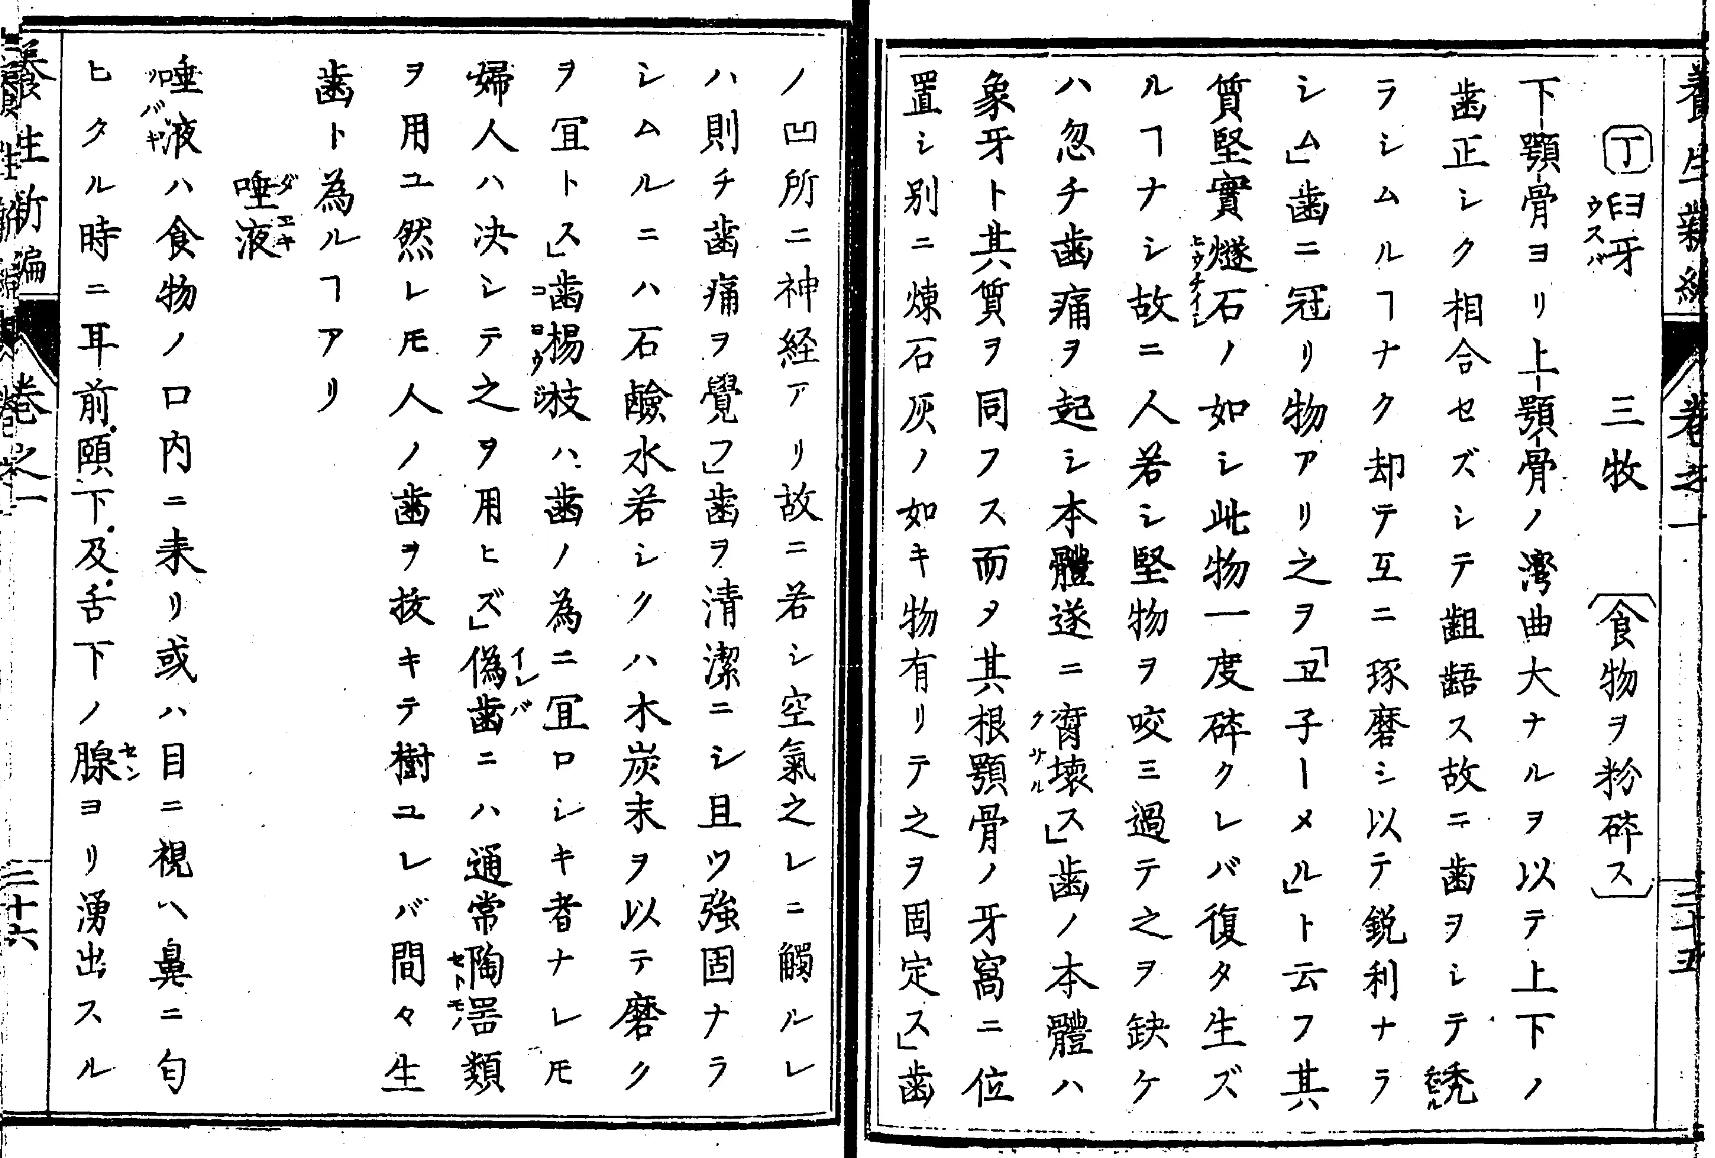 養生新編 巻之一 三十五
丁 臼牙 ウスバ 三牧 〔食物ヲ粉碎ス〕
下顎骨ヨリ上顎骨ノ灣曲大ナルヲ以テ上下ノ
歯正シク相合セズシテ齟齬ス故ニ歯ヲシテ禿
ラシムルヿナク却テ互ニ琢磨シ以テ鋭利ナラ
シム」歯ニ冠リ物アリ之ヲ「ヱ子ーメル」ト云フ其
質堅實燧石ヒウチイシノ如シ此物一度碎クレバ復タ生ズ
ルヿナシ故ニ人若シ堅物ヲ咬ミ過テ之ヲ缺ケ
ハ忽チ歯痛ヲ起シ本體遂ニ腐壞クサルス」歯ノ本體ハ
象牙ト其質ヲ同フス而タ其根顎骨ノ牙窩ニ位
置シ別ニ煉石灰ノ如キ物有リテ之ヲ固定ス」歯
ノ凹所ニ神経アリ故ニ若シ空氣之レニ觸ルレ
ハ則チ歯痛ヲ覺フ」歯ヲ清潔ニシ且ツ強固ナラ
シムルニハ石鹼水若シクハ木炭末ヲ以テ磨ク
ヲ冝トス」歯楊枝コヨウジハ歯ノ為ニ冝ロシキ者ナレモ
婦人ハ决シテ之ヲ用ヒズ」偽歯イレバニハ通常陶器セトモノ類
ヲ用ユ然レモ人ノ歯ヲ抜キテ樹ユレバ間々生
歯ト為ルヿアリ
唾液ダエキ
唾液ツバキハ食物ノ口内ニ来リ或ハ目ニ視ヘ鼻ニ匂
ヒタル時ニ耳前頤下及舌下ノ腺センヨリ湧出スル
養生新編 巻之一 三十六